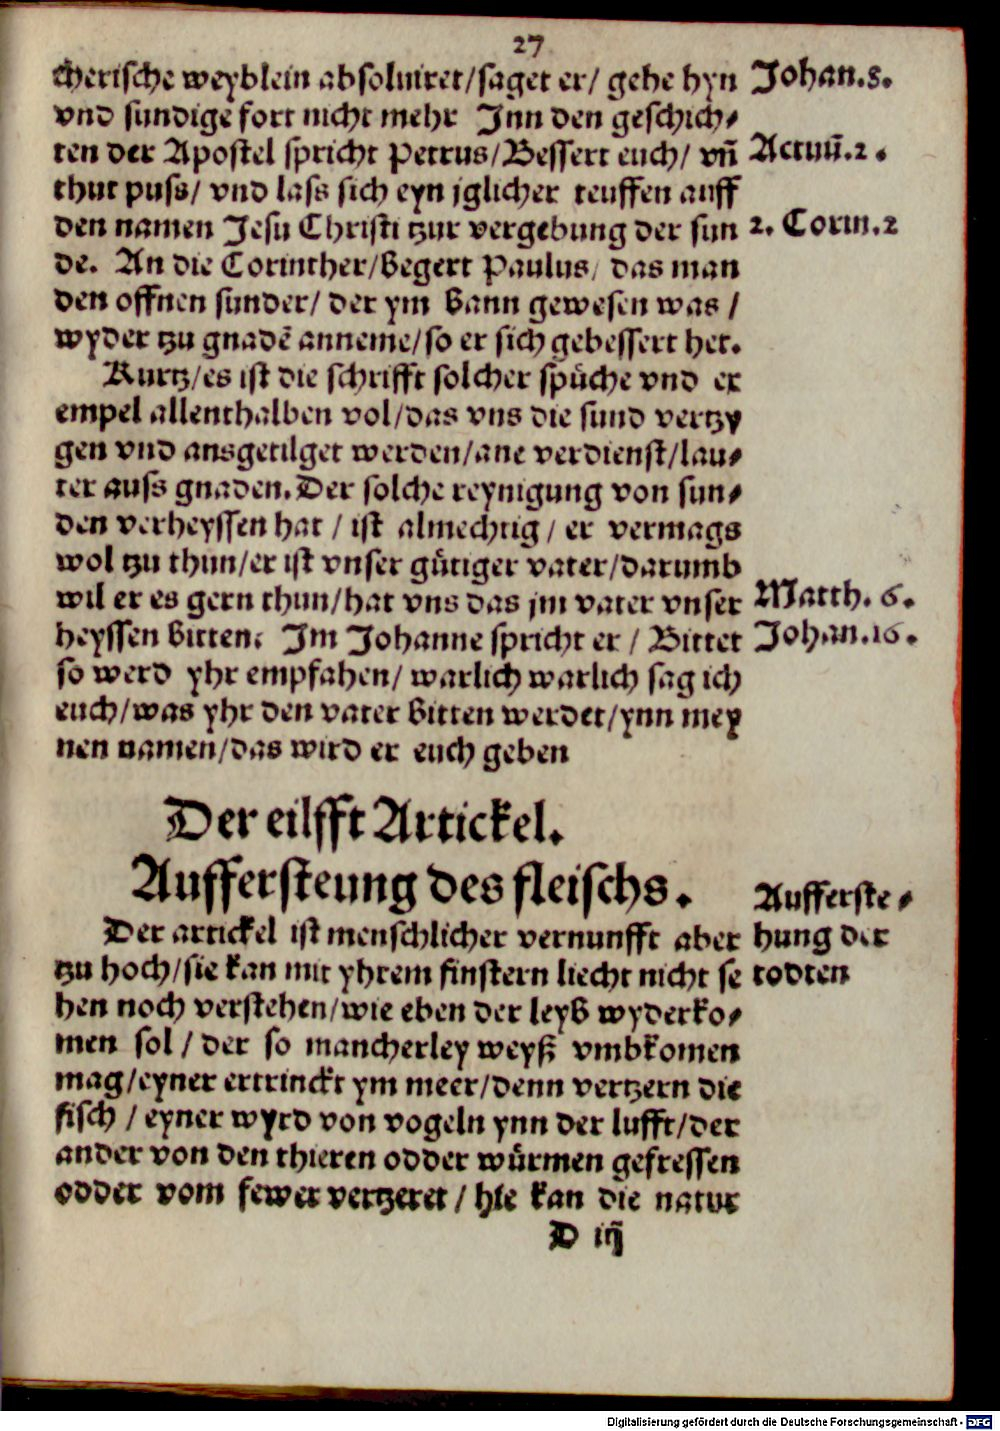 27
cherische weyblein absoluiret/saget er/ gehe hyn
vnd sundige fort nicht mehr Inn den geschich⸗
ten der Apostel spricht Petrus/Bessert euch/ vn̄
thut puss/ vnd lass sich eyn jglicher teuffen auff
den namen Jesu Christi tzur vergebung der sun
de. An die Corinther/begert Paulus/ das man
den offnen sunder/ der ym bann gewesen was /
wyder tzu gnadē anneme/so er sich gebessert het.
Kurtz/es ist die schrifft solcher spüche vnd ex
empel allenthalben vol/das vns die sund vertzy
gen vnd ausgetilget werden/ane verdienst/lau⸗
ter auss gnaden. Der solche reynigung von sun⸗
den verheyssen hat / ist almechtig / er vermags
wol tzu thun/er ist vnser gůtiger vater/darumb
wil er es gern thun/hat vns das jm vater vnser
heyssen bitten. Im Johanne spricht er / Bittet
so werd yhr empfahen/ warlich warlich sag ich
euch/was yhr den vater bitten werdet/ynn mey
nen namen/das wird er euch geben
Johan.8.
Actuū.2.
2. Corin.2
Matth. 6.
Johan.16.
Der eilfft Artickel.
Auffersteung des fleischs.
Der artickel ist menschlicher vernunfft aber
tzu hoch/sie kan mit yhrem finstern liecht nicht se
hen noch verstehen/wie eben der leyb wyderko⸗
men sol / der so mancherley weyß vmbkomen
mag/eyner ertrinckt ym meer/denn vertzern die
fisch / eyner wyrd von vogeln ynn der lufft/der
ander von den thieren odder würmen gefressen
odder vom fewer vertzeret / hie kan die natur
Aufferste⸗
hung der
todten
D iij
Digitalisierung gefördert durch die Deutsche Forschungsgemeinschaft - DFG